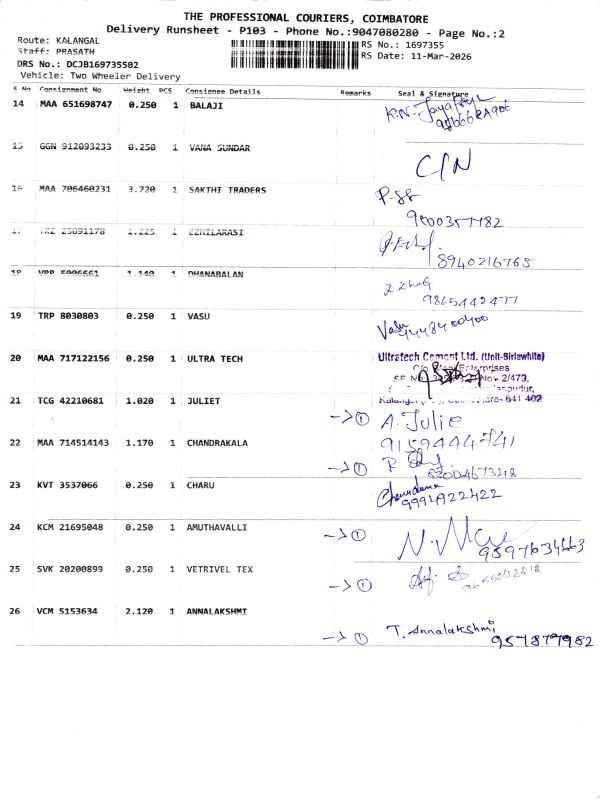 THE PROFESSIONAL COURIERS, COIMBATORE
Delivery Runsheet - P103 - Phone No.:9047080280 - Page No.:2
Route: KALANGAL RS No.: 1697355
Staff: PRASATH RS Date: 11-Mar-2026
DRS No.: DCJB169735502
Vehicle: Two Wheeler Delivery
S No Consignment No Weight PCS Consignee Details Remarks Seal & Signature
14 MAA 651698747 0.250 1 BALAJI
K.N.
15 GGN 912093233 0.250 1 VANA SUNDAR
C/N
16 MAA 706460231 3.720 1 SAKTHI TRADERS
17 25091178 1.225 1 EZHILARASI
8940216765
18 5006661 1.140 1 DHANABALAN
9865442477
19 TRP 8030803 0.250 1 VASU
Vasu
20 MAA 717122156 0.250 1 ULTRA TECH
Ultratech Cement Ltd. (Unit-Birlawhite)
Enterprises
2/479,
641 402
21 TCG 42210681 1.020 1 JULIET
-> 1 A. Julie
22 MAA 714514143 1.170 1 CHANDRAKALA
-> 1
23 KVT 3537066 0.250 1 CHARU
24 KCM 21695048 0.250 1 AMUTHAVALLI
-> 1
9597634663
25 SVK 20200899 0.250 1 VETRIVEL TEX
-> 1
26 VCM 5153634 2.120 1 ANNALAKSHMI
-> 1 T. Annalakshmi
9578779982